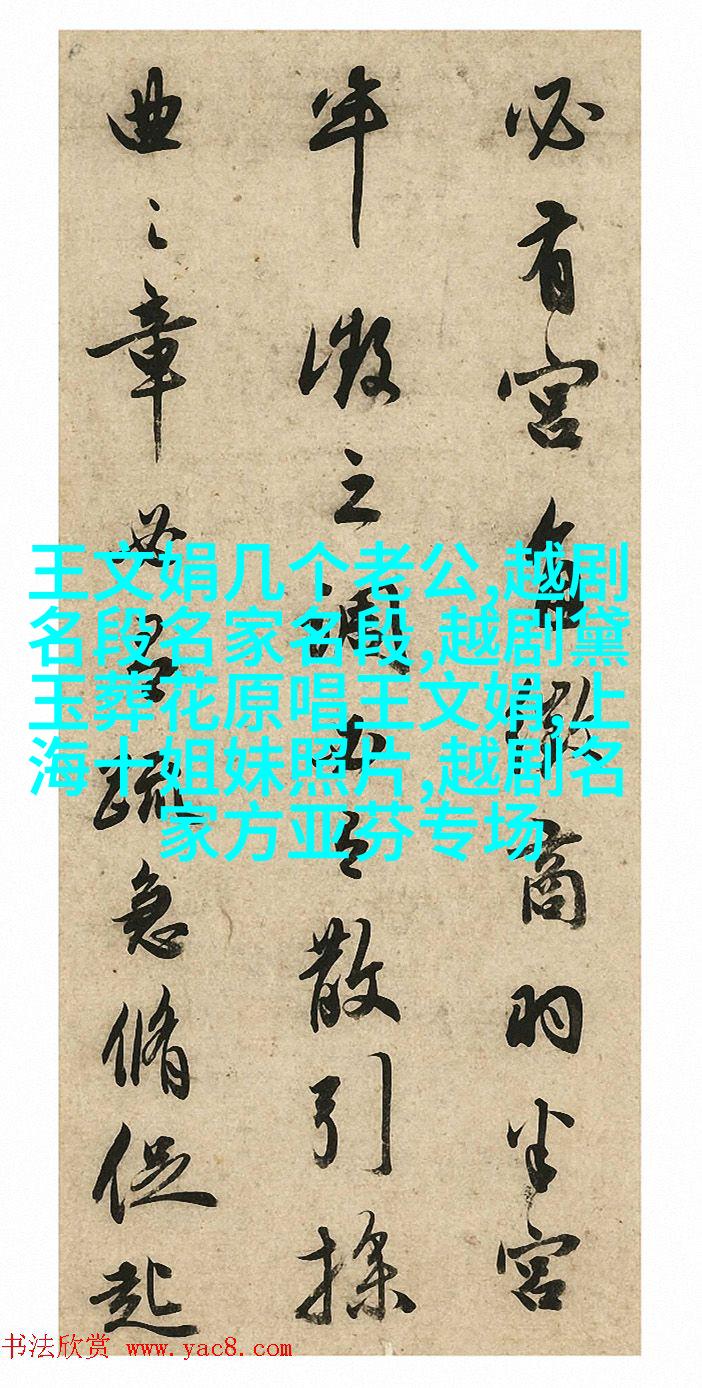 必有宫角徵商羽半宫
半徵之調散引操
曲之章疏急脩促起
王文娟几个老公,越剧
名段名家名段,越剧黛
玉葬花原唱王文娟,上
海十姐妹照片,越剧名
家方亚芬专场
书法欣赏 www.yac8.com